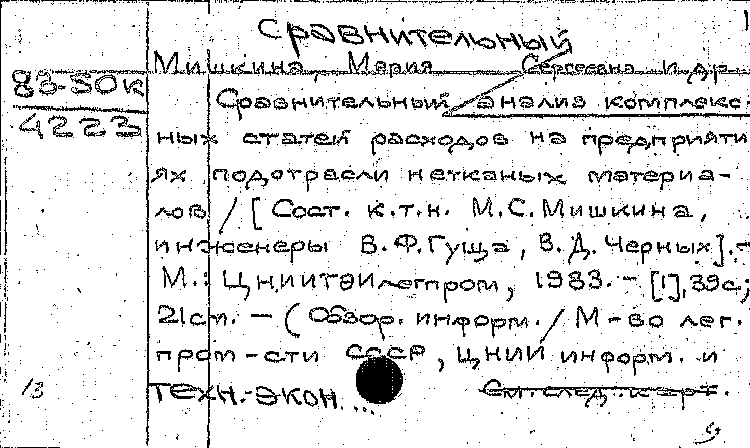 Сравнительный
Мишкина, Мария Сергеевна и др.
83-50к
Сравнительный анализ комплекс-
4223
ных статей расходов на предприяти
ях подотрасли нетканых материа-
лов / [Сост. к.т.н. М.С.Мишкина,
инженеры В.Ф.Гуща, В.Д.Черных].-
М.: ЦНИИТЭИлегпром, 1983. - [1], 39с.;
21см. - (Обзор. информ. / М-во лег.
пром-сти СССР, ЦНИИ информ. и
13
техн.-экон. ... См. след. карт.